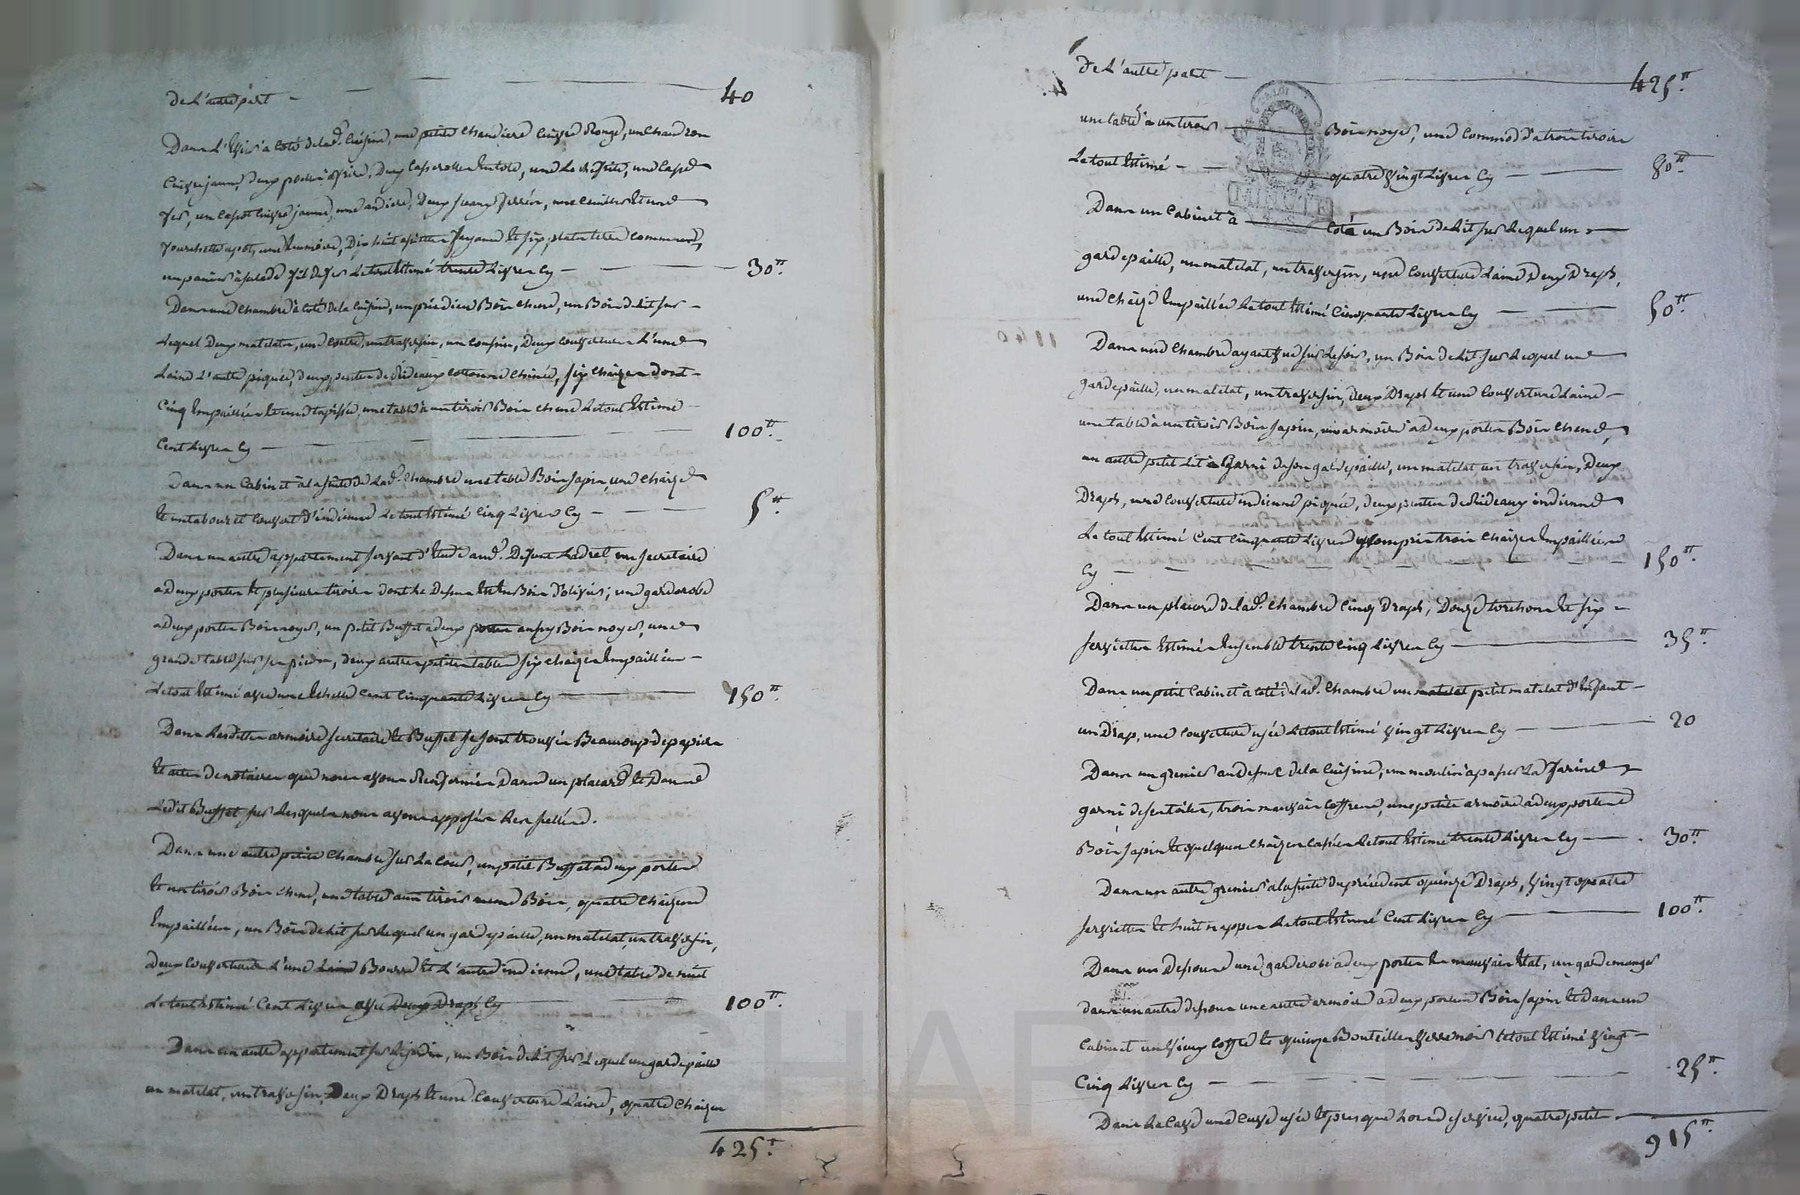 De L'autre part — 40
Dans L'Evier a Coté de lad.e Cuisine, une petite Chaudiere Cuivre Rouge, un Chaudron
Cuivre jaune, deux poeles a frire, Deux Casserolles En tole, une Lechefrite, une
fer, un Cuivre jaune, une andiere, Deux ferrées, une Cuilliere Et une
fourchette a pot, une dix huit assiettes fayance Et six plats terre Commune,
un panier a salade fil de fer Le tout Estimé trente Livres Cy — 30ᵗᵗ.
Dans une Chambre a Coté de la Cuisine, un prie dieu Bois Chene, un Bois de Lit sur
Lequel Deux matelats, une Coetre, un traversin, un Coussin, Deux Couvertures L'une
Laine L'autre piquée, deux pentes de Rideaux Cottonne Chinée, six Chaizes dont
Cinq Empaillées Et une tapissée, une table a un tiroir Bois Chene Le tout Estimé
Cent Livres Cy — 100ᵗᵗ.
Dans un Cabinet a la suite de Lad.e Chambre une table Bois sapin, une Chaize
Et un tabouret Couvert d'indienne Le tout Estimé Cinq Livres Cy — 5ᵗᵗ.
Dans un autre appartement servant d'Etude aud. Defunt Ladret un secretaire
a deux portes Et plusieurs tiroirs dont Le Dessus Est En Bois d'olivier; une garderobe
a deux portes Bois noyer, un petit Buffet a deux portes aussy Bois noyer, une
grande table sur ses pieds, deux autres petites tables six chaizes Empaillées
Le tout Estimé avec une Echelle Cent Cinquante Livres Cy — 150ᵗᵗ.
Dans Lesdittes armoire secretaire Et Buffet se sont trouvés Beaucoup de papiers
Et actes de notaires que nous avons Renfermés Dans un placard Et Dans
Ledit Buffet sur Lesquels nous avons apposés Les scellés.
Dans une autre petite Chambre sur La Cour, un petit Buffet a deux portes
Et un tiroir Bois Chene, une table a un tiroir meme Bois, quatre Chaizes
Empaillées, un Bois de Lit sur Lequel un gardepaille, un matelat, un traversin,
Deux Couvertures L'une Laine Bourre Et L'autre indienne, une table de nuit
Le tout Estimé Cent Livres avec Deux Draps Cy — 100ᵗᵗ.
Dans un autre appartement sur Le jardin, un Bois de Lit sur Lequel un gardepaille
un matelat, un traversin, Deux Draps Et une Couverture Laine, quatre Chaizes
425ᵗᵗ.
De L'autre part — 425ᵗᵗ.
une table a un tiroir — Bois noyer, une Commode a trois tiroirs
Le tout Estimé — quatre vingt Livres Cy — 80ᵗᵗ.
Dans un Cabinet a — Coté un Bois de Lit sur Lequel un
gardepaille, un matelat, un traversin, une Couverture Laine Deux Draps,
une Chaize Empaillée Le tout Estimé Cinquante Livres Cy — 50ᵗᵗ.
Dans une Chambre ayant vue sur un Bois de Lit sur Lequel une
gardepaille, un matelat, un traversin, deux Draps Et une Couverture Laine
une table a un tiroir Bois sapin, une armoire a Deux portes Bois Chene,
un autre petit Lit Garni de son gardepaille, un matelat un traversin, Deux
Draps, une Couverture indienne piquée, deux pentes de Rideaux indienne
Le tout Estimé Cent Cinquante Livres y Compris trois Chaizes Empaillées
Cy — 150ᵗᵗ.
Dans un placard de lad.e Chambre Cinq Draps, Douze torchons Et six
serviettes Estimés Ensemble trente Cinq Livres Cy — 35ᵗᵗ.
Dans un petit Cabinet a Coté de lad.e Chambre un matelat petit matelat d'Enfant
un Drap, une Couverture usée Le tout Estimé vingt Livres Cy — 20
Dans un grenier au dessus de la Cuisine, un moulin a passer La farine
garni de ses toiles, trois mauvais Coffres, une petite armoire a deux portes
Bois sapin Et quelques Chaizes Cassées Le tout Estimé trente Livres Cy — 30ᵗᵗ.
Dans un autre grenier a la suite du précédent quinze Draps, vingt quatre
serviettes Et huit nappes Le tout Estimé Cent Livres Cy — 100ᵗᵗ.
Dans un une garderobe a deux portes En mauvais Etat, un gardemanger
dans un autre une autre armoire a deux portes Bois sapin Et dans un
Cabinet un vieux Coffre Et quinze Bouteilles verre noir Le tout Estimé vingt
Cinq Livres Cy — 25ᵗᵗ.
Dans La Cave une Cuve usée Et presque hors de service, quatre petits
915ᵗᵗ.